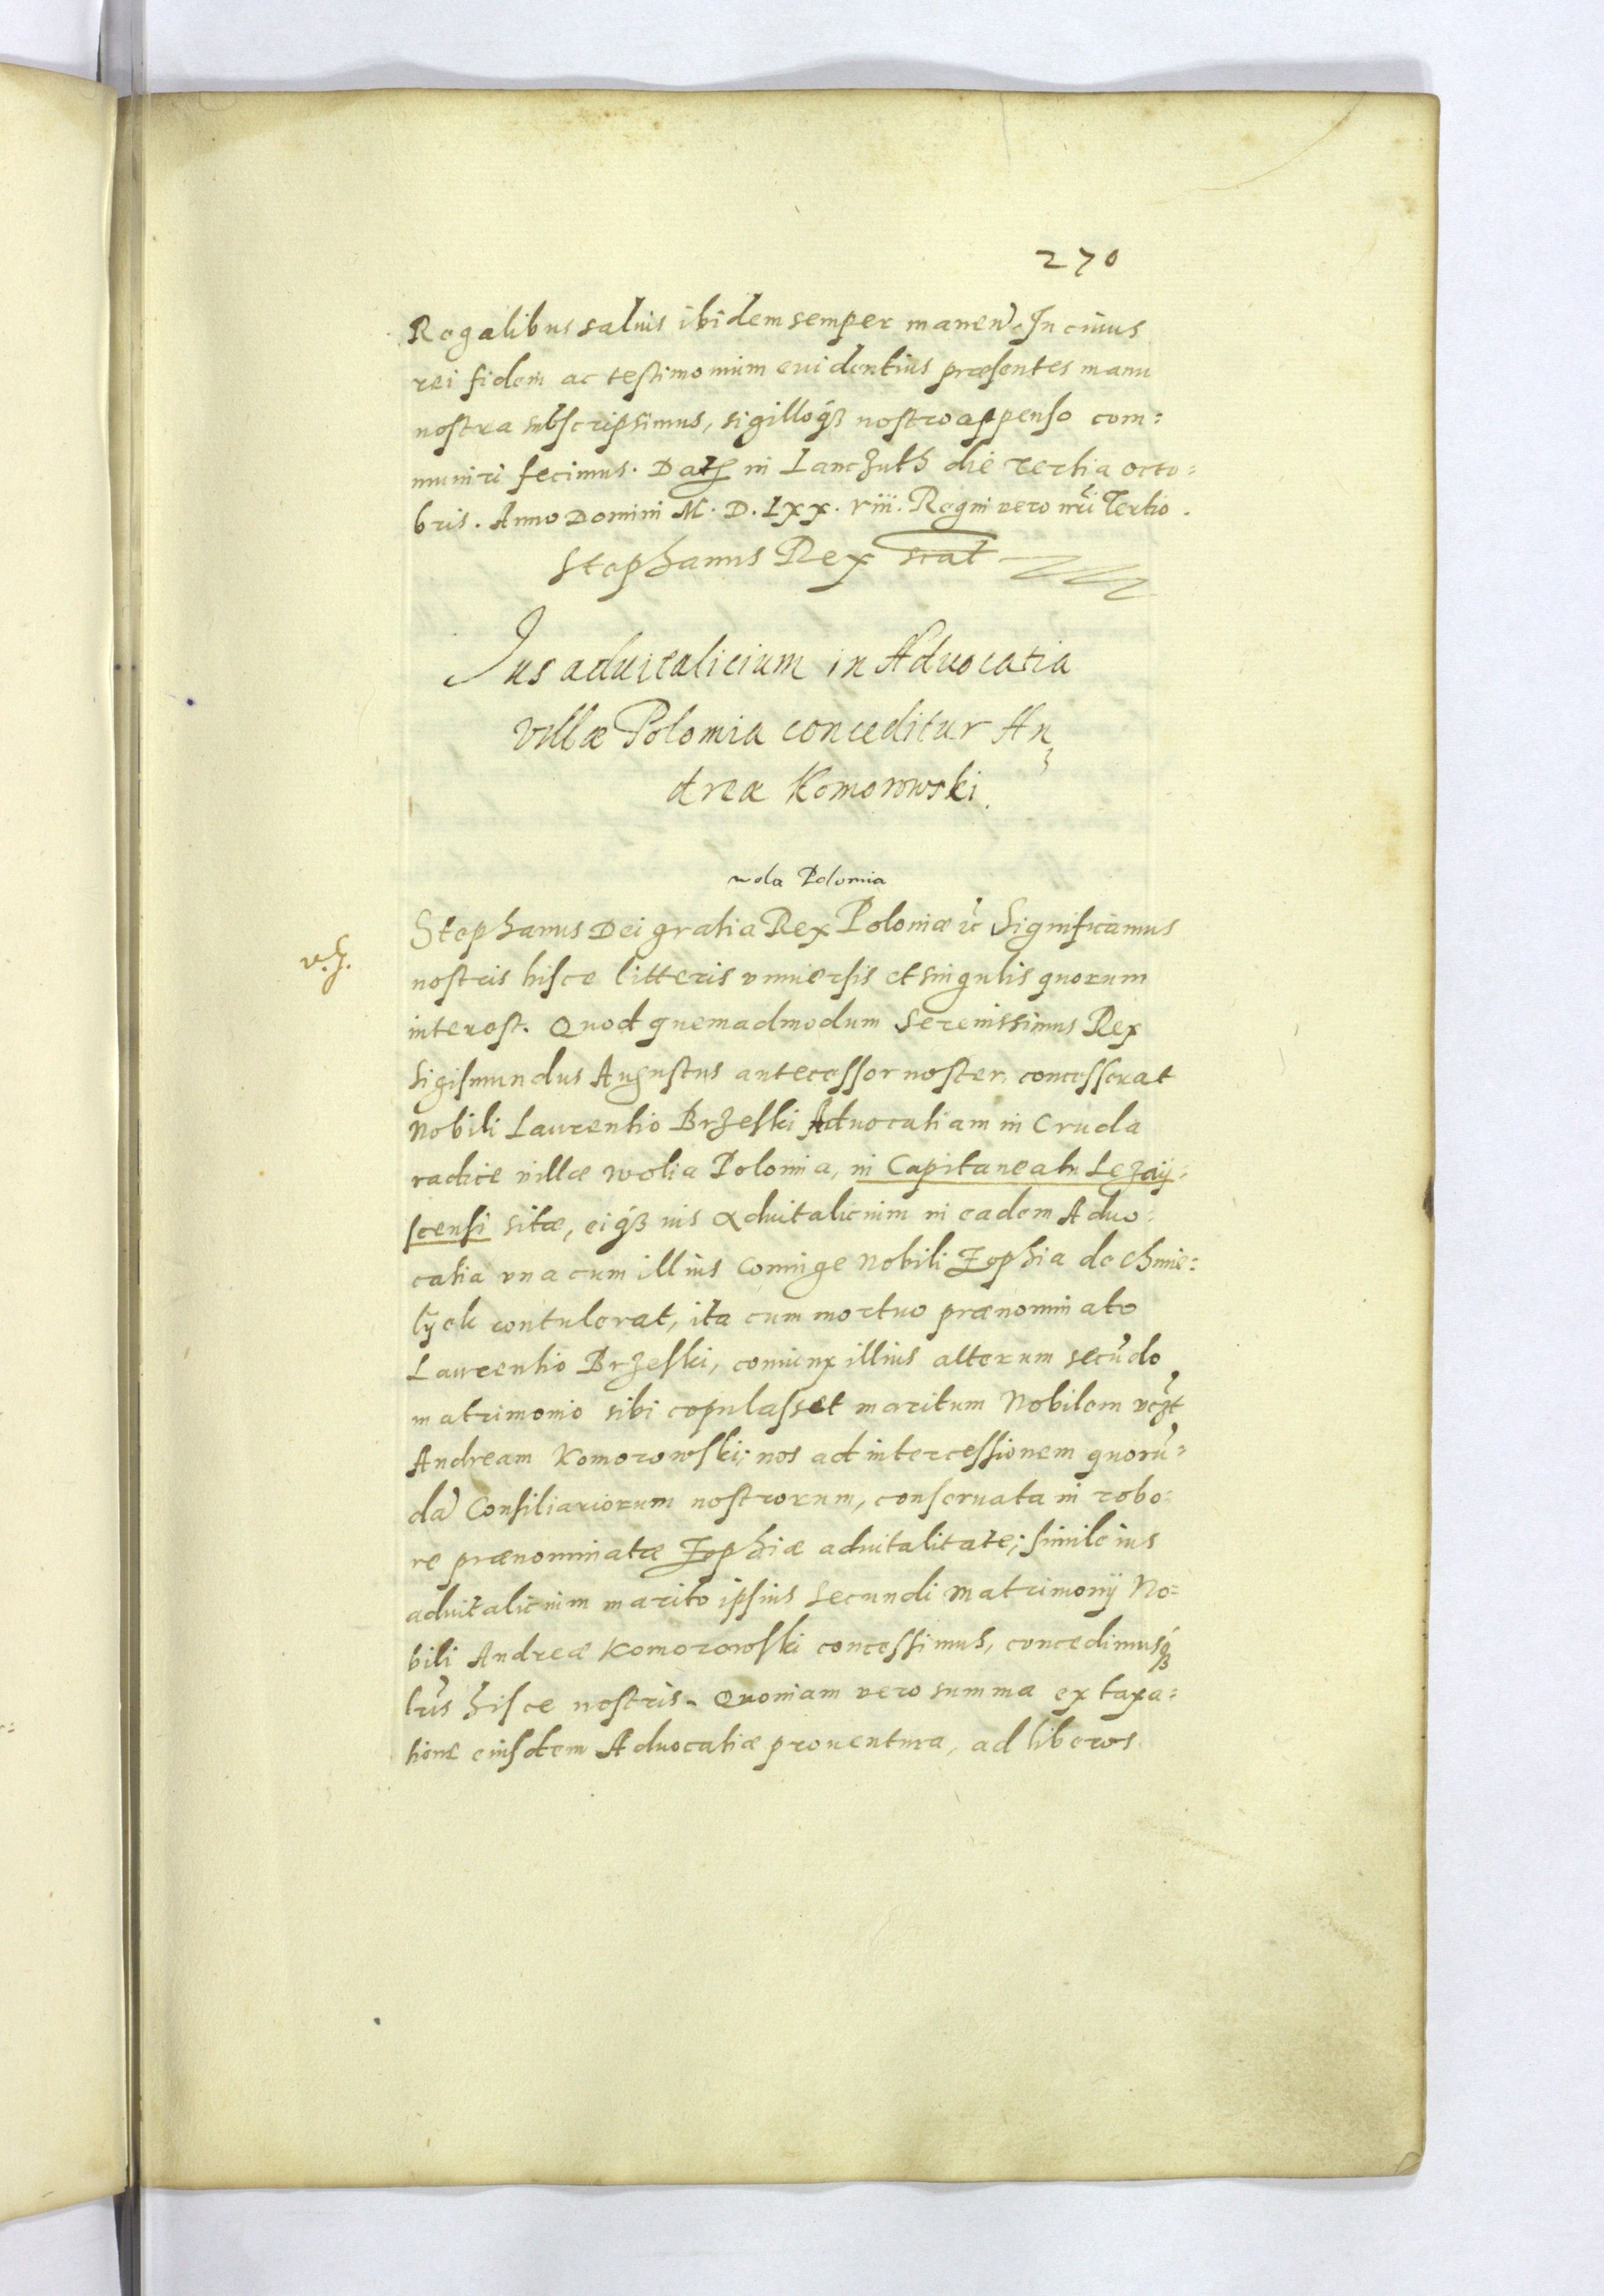 270
Regalibus saluis ibidem semper manen̄. In cuius
rei fidem ac testimonium euidentius præsentes manu
nostra subscripsimus, sigilloq́ꝫ nostro appenso com=
muniri fecimus. Datꝭ in Lanczuth die tertia octo=
bris. Anno Domini M. D. Lxx. viii. Regni vero nr̄i Tertio.
Stephanus Rex
Ius aduitalicium in Aduocatia
villæ Polomia conceditur An
dreæ Komorowski.
wola Polomia
Stephanus Dei gratia Rex Poloniæ ec̄ Significamus
v.J.
nostris hisce litteris vniuersis et singulis quorum
interest. Quod quemadmodum Serenissimus Rex
Sigismundus Augustus antecessor noster, concesserat
Nobili Laurentio Brzeski Aduocatiam in Cruda
radice villæ wolia Polomia, in Capitaneatu Lezaij=
scensi sitæ, eiq́ꝫ ius aduitalicium in eadem Aduo=
catia vna cum illius Coniuge Nobili Zophia de Chmie=
lÿek contulerat, ita cum mortuo prænominato
Laurentio Brzeski, coniunx illius alterum secūdo
matrimonio sibi copulasset maritum Nobilem vꝫt
Andream Komorowski; nos ad intercessionem quorū=
dā Consiliariorum nostrorum, conseruata in robo=
re prænominatæ Zophiæ aduitalitate; simile ius
aduitalicium marito ipsius secundi matrimonij No=
bili Andreæ Komorowski concessimus, concedimusq́ꝫ
lr̄is hisce nostris. Quoniam vero summa ex taxa=
tione eiusdem Aduocatiæ prouentura, ad liberos